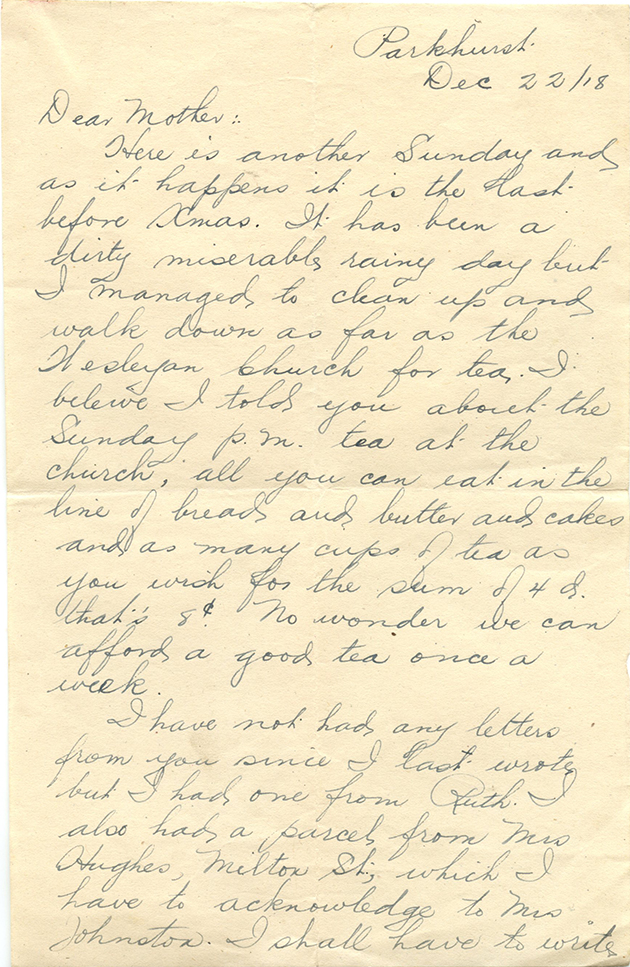 Parkhurst
Dec 22/18
Dear Mother:
Here is another Sunday and
as it happens it is the last
before Xmas. It has been a
dirty miserable rainy day but
I managed to clean up and
walk down as far as the
Wesleyan Church for tea. I
beleive I told you about the
Sunday p.m. tea at the
church, all you can eat in the
line of bread and butter and cakes
and as many cups of tea as
you wish for the sum of 4 d.
that's 8¢. No wonder we can
afford a good tea once a
week.
I have not had any letters
from you since I last wrote
but I had one from Ruth. I
also had a parcel from Mrs
Hughes, Milton St., which I
have to acknowledge to Mrs
Johnston. I shall have to write